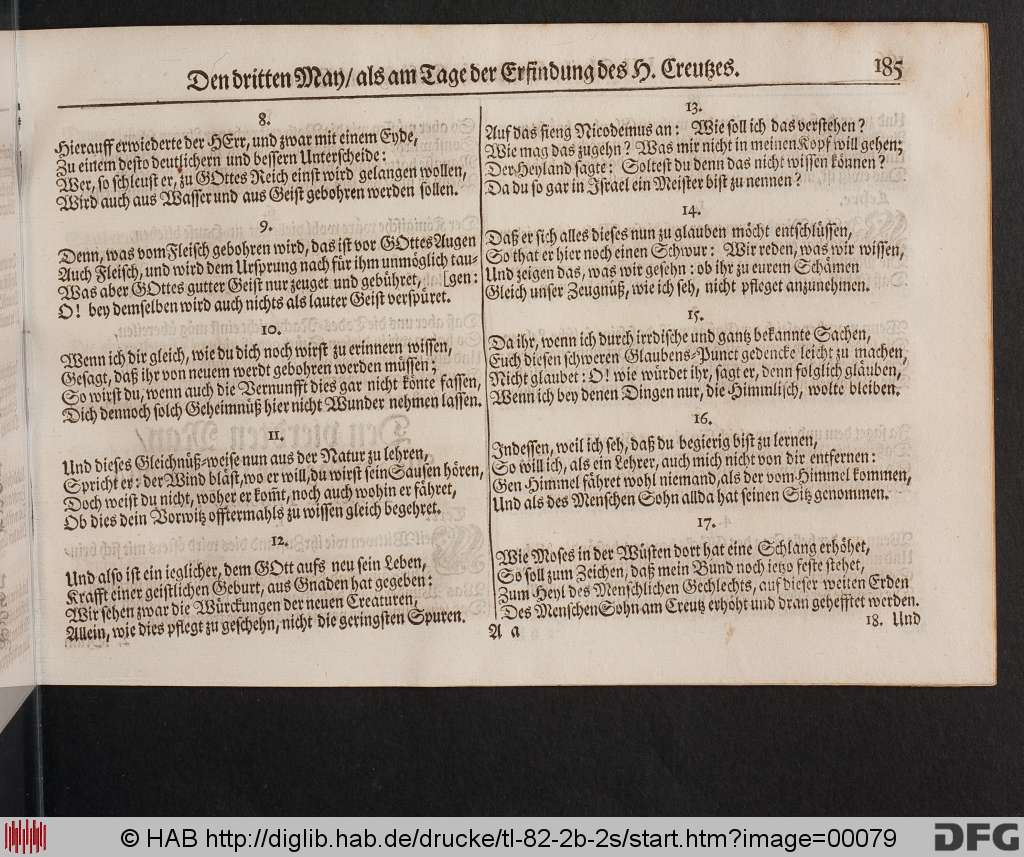 Den dritten May/ als am Tage der Erfindung des H. Creutzes. 185
8.
Hierauff erwiederte der HErr, und zwar mit einem Eyde,
Zu einem desto deutlichern und bessern Unterscheide:
Wer, so schleust er, zu GOttes Reich einst wird gelangen wollen,
Wird auch aus Wasser und aus Geist gebohren werden sollen.
9.
Denn, was vom Fleisch gebohren wird, das ist vor GOttes Augen
Auch Fleisch, und wird dem Ursprung nach für ihm unmöglich tau-
Was aber GOttes gutter Geist nur zeuget und gebühret, [gen:
O! bey demselben wird auch nichts als lauter Geist verspüret.
10.
Wenn ich dir gleich, wie du dich noch wirst zu erinnern wissen,
Gesagt, daß ihr von neuem werdt gebohren werden müssen;
So wirst du, wenn auch die Vernunfft dies gar nicht könte fassen,
Dich dennoch solch Geheimnüß hier nicht Wunder nehmen lassen.
11.
Und dieses Gleichnüß-weise nun aus der Natur zu lehren,
Spricht er: der Wind bläst, wo er will, du wirst sein Sausen hören,
Doch weist du nicht, woher er kom̃t, noch auch wohin er fähret,
Ob dies dein Vorwitz offtermahls zu wissen gleich begehret.
12.
Und also ist ein ieglicher, dem GOtt aufs neu sein Leben,
Krafft einer geistlichen Geburt, aus Gnaden hat gegeben:
Wir sehen zwar die Würckungen der neuen Creaturen,
Allein, wie dies pflegt zu geschehn, nicht die geringsten Spuren.
13.
Auf das fieng Nicodemus an: Wie soll ich das verstehen?
Wie mag das zugehn? Was mir nicht in meinen Kopf will gehen;
Der Heyland sagte: Soltest du denn das nicht wissen können?
Da du so gar in Israel ein Meister bist zu nennen?
14.
Daß er sich alles dieses nun zu glauben möcht entschlüssen,
So that er hier noch einen Schwur: Wir reden, was wir wissen,
Und zeigen das, was wir gesehn: ob ihr zu eurem Schämen
Gleich unser Zeugnüß, wie ich seh, nicht pfleget anzunehmen.
15.
Da ihr, wenn ich durch irrdische und gantz bekannte Sachen,
Euch diesen schweren Glaubens-Punct gedencke leicht zu machen,
Nicht glaubet: O! wie würdet ihr, sagt er, denn folglich gläuben,
Wenn ich bey denen Dingen nur, die Himmlisch, wolte bleiben.
16.
Indessen, weil ich seh, daß du begierig bist zu lernen,
So will ich, als ein Lehrer, auch mich nicht von dir entfernen:
Gen Himmel fähret wohl niemand, als der vom Himmel kommen,
Und als des Menschen Sohn allda hat seinen Sitz genommen.
17.
Wie Moses in der Wüsten dort hat eine Schlang erhöhet,
So soll zum Zeichen, daß mein Bund noch ietzo feste stehet,
Zum Heyl des Menschlichen Gechlechts, auf dieser weiten Erden
Des Menschen Sohn am Creutz erhöht und dran gehefftet werden.
A a 18. Und
© HAB http://diglib.hab.de/drucke/tl-82-2b-2s/start.htm?image=00079
DFG